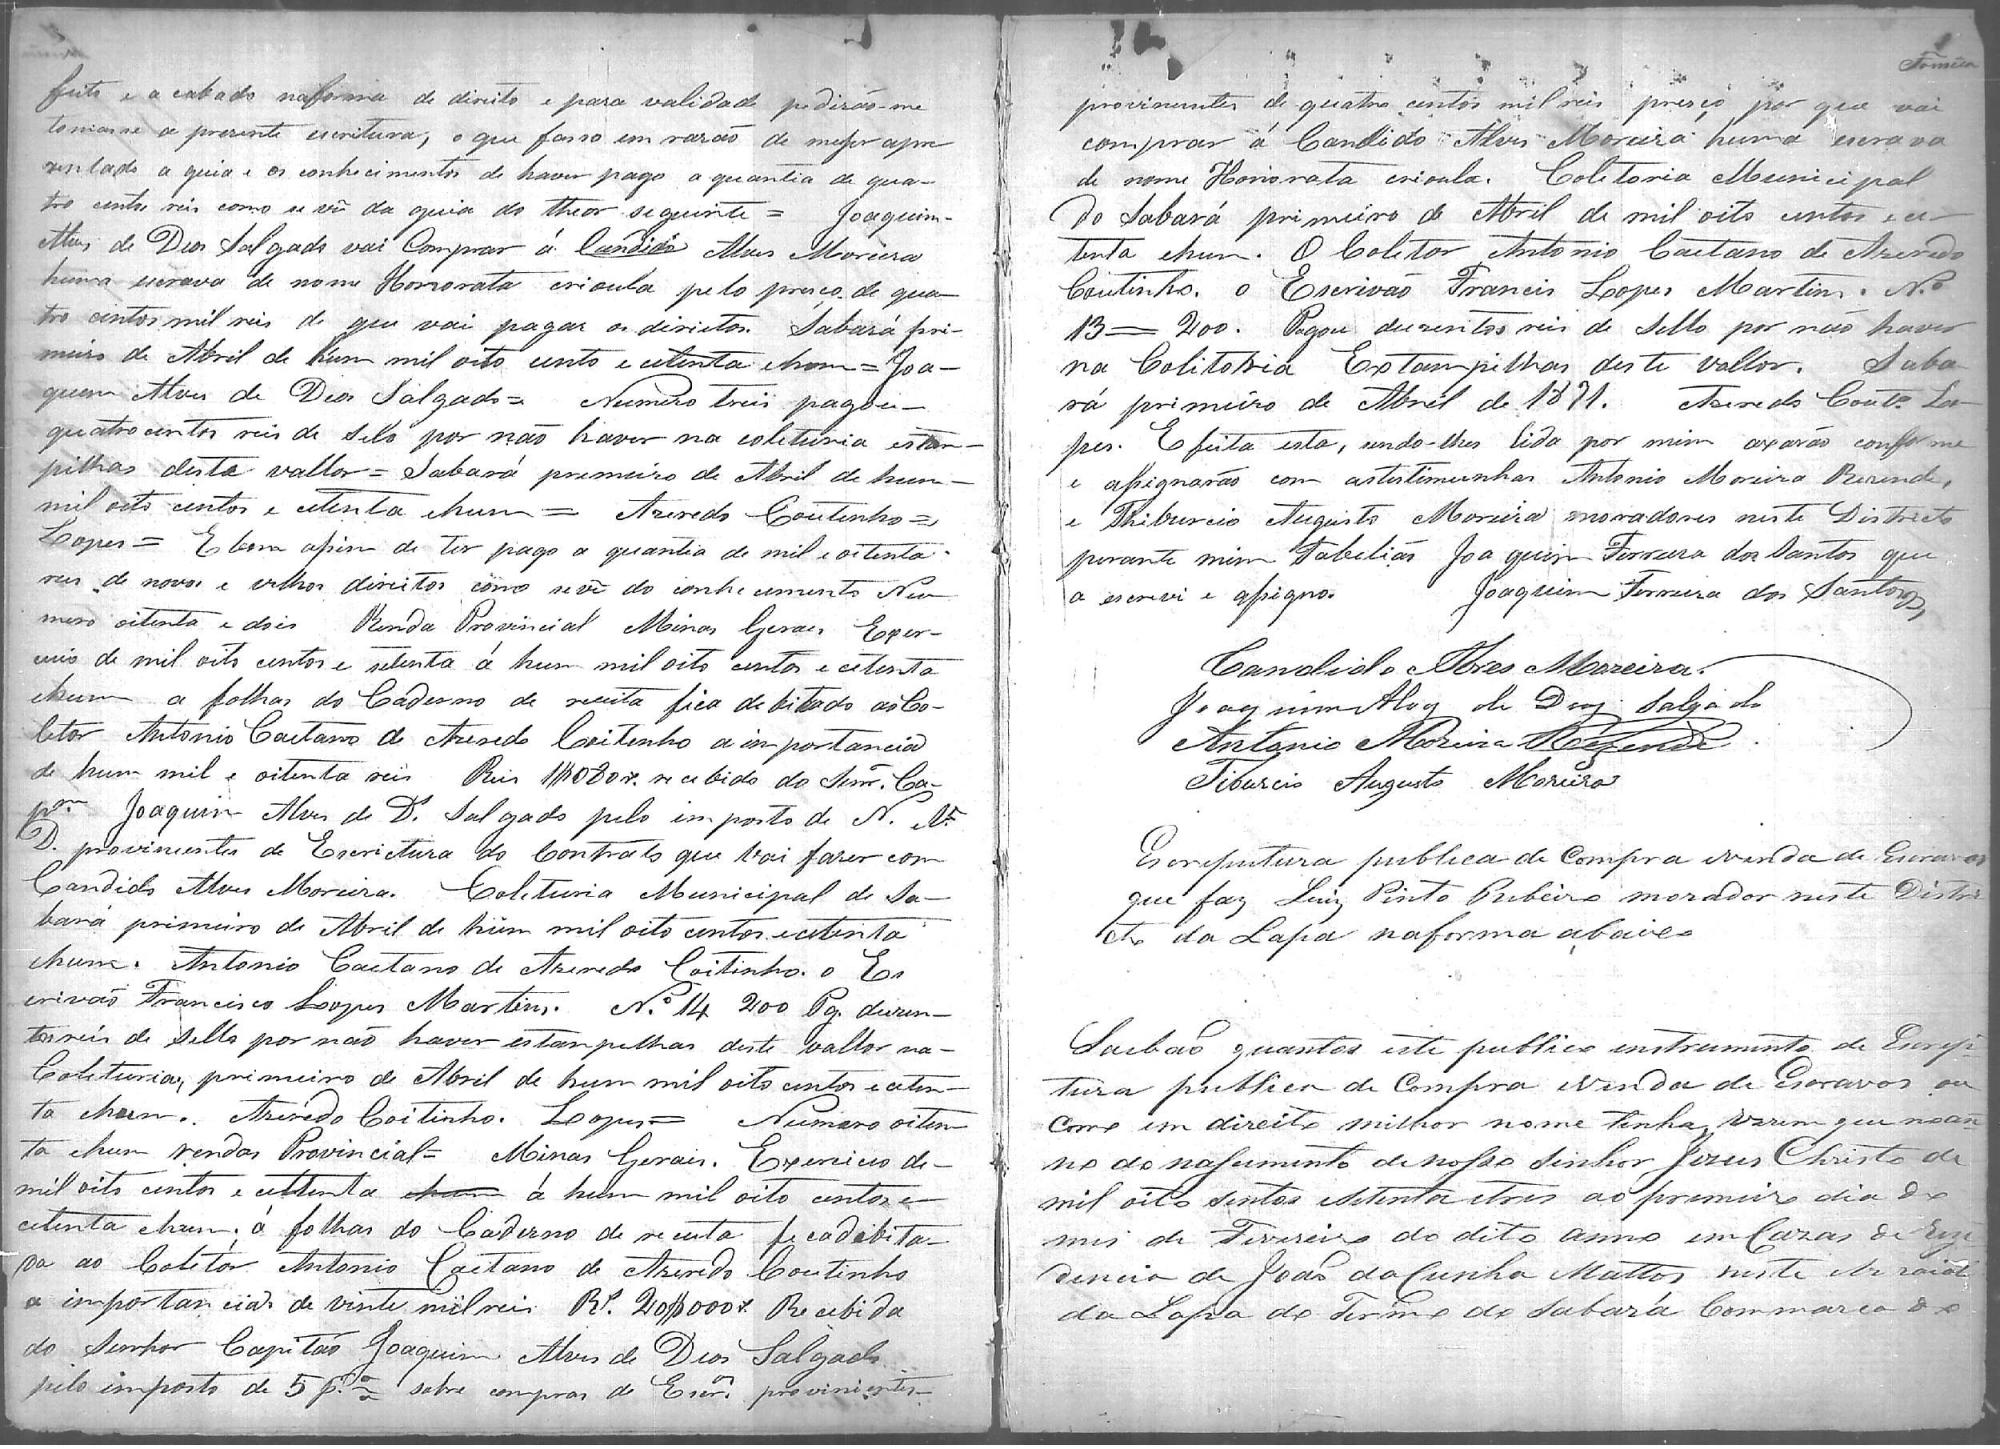 feito e acabado na forma de direito e para validade pedirão-me
tomasse a presente escritura, o que fasso em rasão de me ser apre
zentado a guia e os conhecimentos de haver pago a quantia de qua-
tro centos reis como se vê da guia do theor seguinte = Joaquim-
Alves de Deos Salgado vai Comprar á Candido Alves Moreira
huma escrava de nome Honorata crioula pelo preço de qua-
tro centos mil reis de que vai pagar os direitos. Sabará pri-
meiro de Abril de hum mil oito cento e cetenta ehum = Joa-
quim Alves de Deos Salgado = Numero treis pagou-
quatro centos reis de selo por não haver na coleturia estan-
pilhas desta vallor = Sabará premeiro de Abril de hum-
mil oito centos e cetenta ehum = Azeredo Coutinho =
Lopes = E bem assim de ter pago a quantia de mil e oitenta
reis de novos e velhos direitos como se vê do conhecimento Nu
mero oitenta e dois Renda Provincial Minas Geraes Exer-
cicio de mil oito centos e setenta á hum mil oito centos e cetenta
ehum a folhas do Caderno de receita fica debitado ao Co-
letor Antonio Caetano de Azeredo Coitenho a importancia
de hum mil e oitenta reis Reis 1$080r. recebido do Senr. Ca-
pm. Joaquim Alves de Ds. Salgado pelo imposto de N. e V.
D. provinientes de Escrictura do Contrato que vai fazer com
Candido Alves Moreira. Coleturia Municipal de Sa-
bará primeiro de Abril de hum mil oito centos e cetenta
ehum. Antonio Caetano de Azeredo Coitinho. o Es
crivão Francisco Lopes Martins. N.º 14 200 Pg. duzen-
tos reis de sello por não haver estanpelhas deste vallor na-
Coleturia, primeiro de Abril de hum mil oito centos e ceten-
ta ehum. Azerêdo Coitinho. Lopes = Numero oiten
ta ehum rendas Provincial = Minas Gerais. Exercicio de-
mil oito centos e cettenta ehum á hum mil oito centos e-
cetenta ehum, á folhas do Caderno de receita fica debita-
do ao Coletôr Antonio Caetano de Azeredo Coutinho
a importancia de vinte mil reis Rs. 20$000r. Recebida
do Senhor Capitão Joaquim Alves de Deos Salgado
pelo imposto de 5 p.% sobre compras de Escr.os provinientes-
provinientes de quatro centos mil reis preço por que vai
comprar á Candido Alves Moreira huma escrava
de nome Honorata crioula. Coletoria Municipal
do Sabará primeiro de Abril de mil oito centos e ce-
tenta ehum. O Coletor Antonio Caetano de Azeredo
Coutinho. o Escrivão Francis Lopes Martins. N.º
13 = 200. Pagou duzentos reis de Sello por não haver
na Colitohia Extampilhas deste vallor. Saba
rá primeiro de Abril de 1871. Azeredo Coutº. Lo-
pes. E feita esta, sendo-lhes lida por mim axarão conforme
e assignarão com as testimunhas Antonio Moreira Rezende,
e Thiburcio Augusto Moreira moradores neste Districto
perante mim Tabelião Joaquim Ferreira dos Santos que
a escrevi e assigno. Joaquim Ferreira dos Santos
Candido Alves Moreira.
Joaquim Alvz de Deoz Salgado
Antonio Moreira Rezende
Tiburcio Augusto Moreira
Escreputura publica de Compra evenda de Escravos
que faz Luiz Pinto Rebeiro morador neste Distri
cto da Lapa naforma abaixo
Saibaõ quantos este publico enstrumento de Escrep
tura publica de Compra evenda de Escravos ou
como em direito milhor nome tenha, verem que noan
no do nassumento de nosso Sinhor Jezus Christo de
mil oito sentos esetenta etres ao premeiro dia do
mes de Fevereiro do dito anno em Cazas de Rezi
dencia de João da Cunha Mattos neste Arraial
da Lapa do Termo do Sabará Commarca do